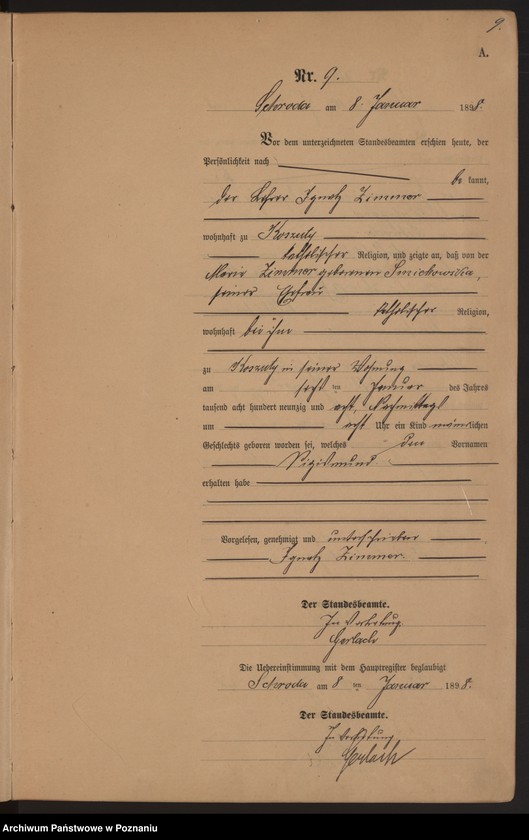 9.
A.
Nr. 9.
Schroda am 8. Januar 1898.
Vor dem unterzeichneten Standesbeamten erschien heute, der
Persönlichkeit nach
be kannt,
der Lehrer Ignatz Zimmer
wohnhaft zu Koszuty
katholischer Religion, und zeigte an, daß von der
Maria Zimmer geborenen
seiner Ehefrau
katholischer Religion,
wohnhaft bei ihm
zu Koszuty in seiner Wohnung
am sechs ten Januar des Jahres
tausend acht hundert neunzig und acht, Nachmittags
um acht Uhr ein Kind männlichen
Geschlechts geboren worden sei, welches den Vornamen
Sigismund
erhalten habe
Vorgelesen, genehmigt und unterschrieben
Ignatz Zimmer.
Der Standesbeamte.
In Vertretung
Gerlach
Die Uebereinstimmung mit dem Hauptregister beglaubigt
Schroda am 8 ten Januar 1898.
Der Standesbeamte.
In Vertretung
Gerlach
Archiwum Państwowe w Poznaniu